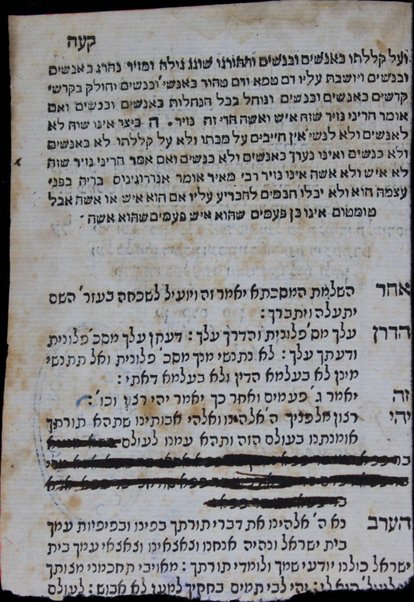 קעה
ועל קללתו כאנשים וכנשים וההורגו שוגג גולה ומזיד נהרג כאנשים
וכנשים ויושבת עליו דם טמא ודם טהור כאנשי׳ וכנשים וחולק בקרשי
קדשים כאנשים וכנשים ונוחל בכל הנחלות כאנשים וכנשים ואם
אומר הריני נזיר שזה איש ואשה הרי זה נזיר. ה כיצר אינו שוה לא
לאנשים ולא לנשי׳ אין חייבים על מכתו ולא על קללתו לא כאנשים
ולא כנשים ואינו נערך כאנשים ולא כנשים ואם אמר הריני נזיר שזה
לא איש ולא אשה אינו נזיר רבי מאיר אומר אנדרוגינוס בריה בפני
עצמה הוא ולא יכלו חכמים להכריע עליו אם הוא איש או אשה אבל
טומטום אינו כן פעמים שהוא איש פעמים שהוא אשה
אחר השלמת המסכתא יאמר זה ויועיל לשכחה בעזר׳ השם
יתעלה ויתברך:
הדרן עלך מס׳ פלונית והדרך עלך: דעתן עלך מסכ׳ פלונית
ודעתך עלך: לא נתנשי מנך מסכ׳ פלונית ולא תתנשי
מינן לא בעלמא הדין ולא בעלמא דאתי:
זה יאמר ג׳ פעמים ואחר כך יאמר יהי רצון וכו׳:
יהי רצון מלפניך ה׳ אלהינו ואלהי אבותינו שתהא תורתך
אומנתנו בעולם הזה ותהא עמנו לעולם
הערב נא ה׳ אלהינו את דברי תורתך בפינו ובפיפיות עמך
בית ישראל ונהיה אנחנו וצאצאינו וצאצאי עמך בית
ישראל כולנו יודעי שמך ולומדי תורתך: מאויבי תחכמני מצותך
לעול׳ היא לי: יהי לבי תמים בחקיך למען לא אבוש: לעולם